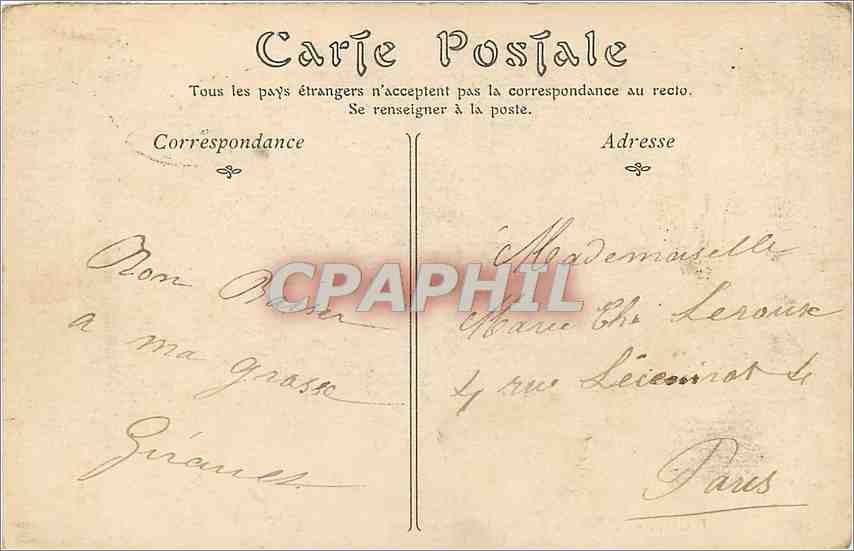 Carte Postale
Tous les pays étrangers n'acceptent pas la correspondance au recto.
Se renseigner à la poste.
Correspondance
Adresse
CPAPHIL
a ma grosse
Girault
Mademoiselle
Marie Leroux
4 rue 4
Paris